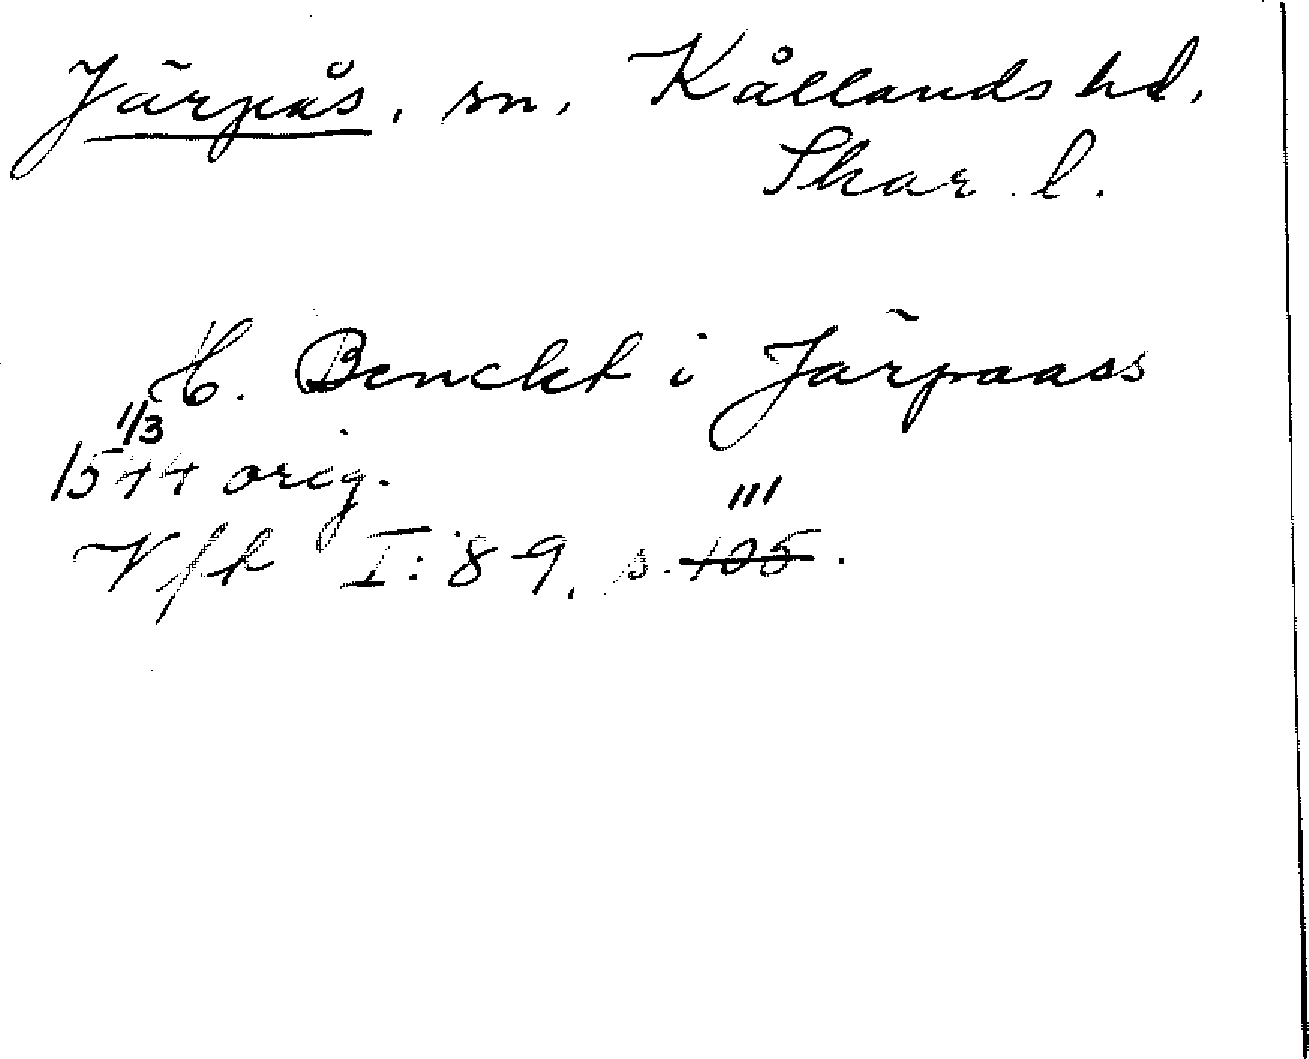 Järpås, sn, Kållands hd.
Skar. l.
H. Benckt i Järpaass
1/3
1544 orig.
111
Vfk I:89, s. 105.